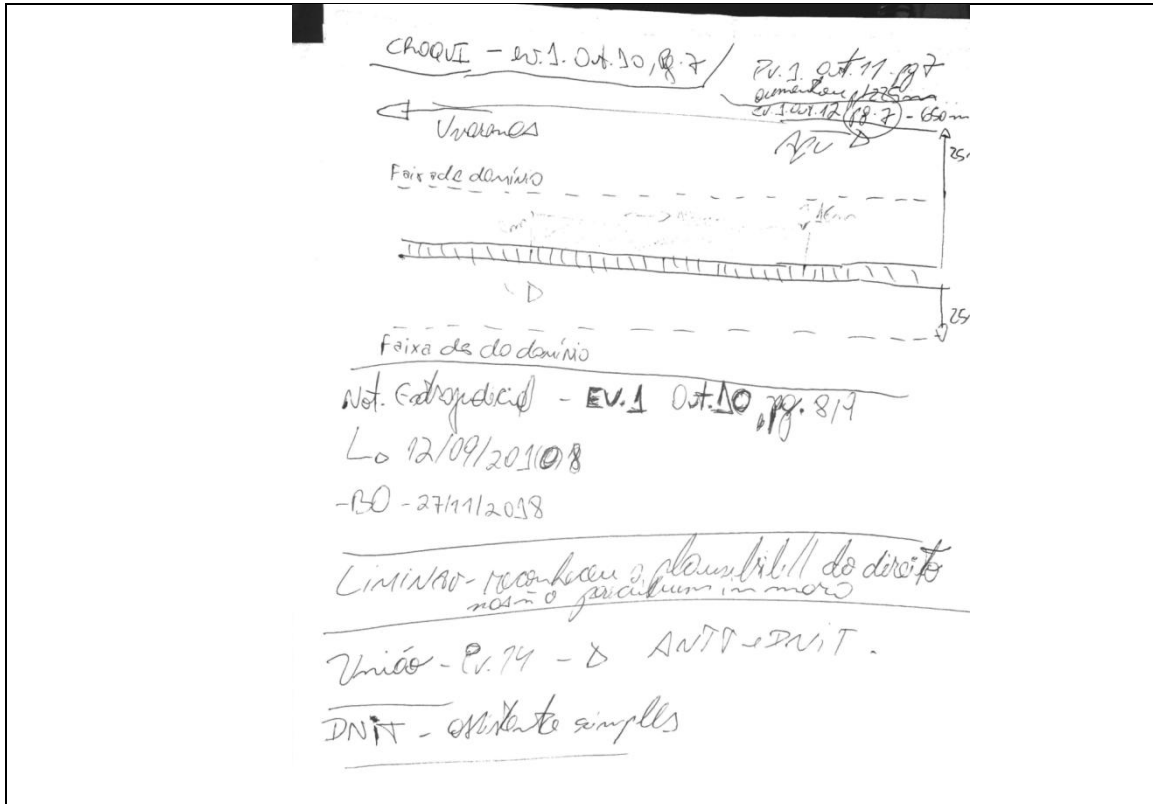 CROQUI - ev.1. Out.10, pg.7
Ev.1. Out.11. pg 7
aumentou p/ 225m
Ev.1. Out.12 pg.7 - 650m
Faixa de domínio
16m
25
D
25
Faixa de do domínio
Not. Extrajudicial - EV.1 Out.10, pg. 8/9
12/09/2018
-BO - 27/11/2018
LIMINAR - reconheceu a plausibil// do direito
mas ñ periculum in mora
União - Ev.14 - ANTT e DNIT.
DNIT - assistente simples